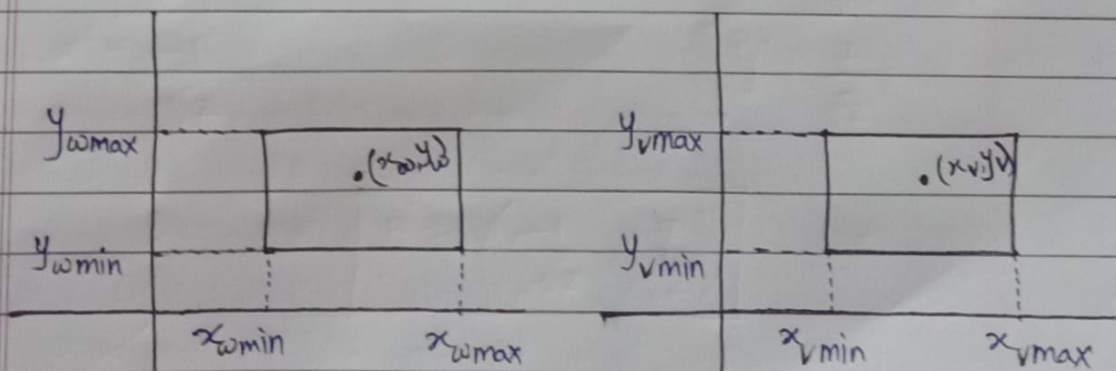 y_wmax
.(x_w,y_w)
y_wmin
x_wmin x_wmax
y_vmax
.(x_v,y_v)
y_vmin
x_vmin x_vmax